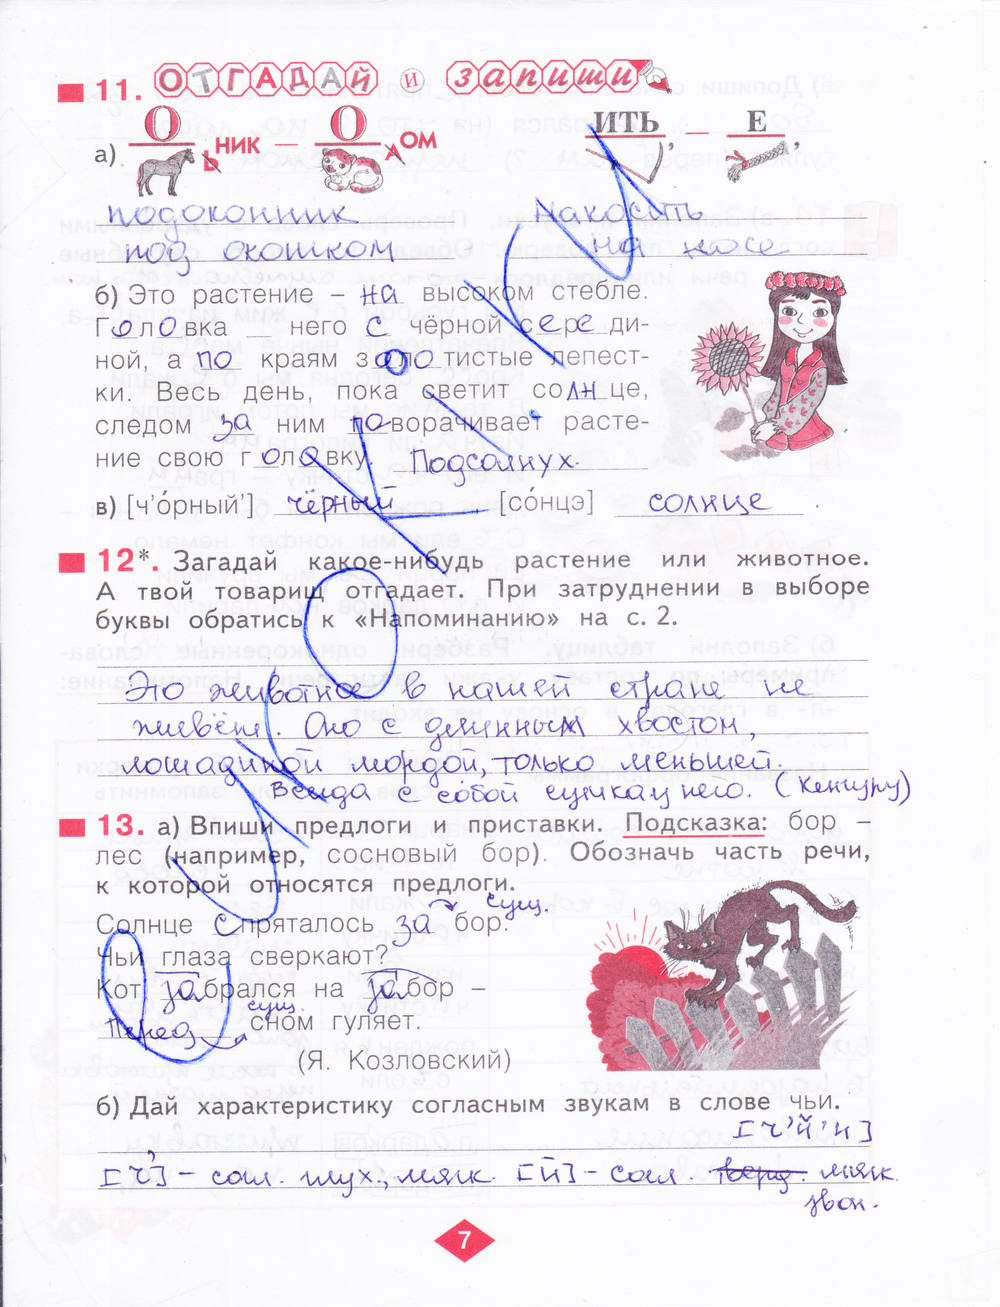 11. ОТГАДАЙ И ЗАПИШИ
а). О Ь НИК – О ДОМ ИТЬ, – Е,
подоконник накосить
под окошком на косе
б) Это растение – на высоком стебле.
Головка него с чёрной середи-
ной, а по краям золотистые лепест-
ки. Весь день, пока светит солнце,
следом за ним поворачивает расте-
ние свою головку. Подсолнух.
в) [ч’о́рный’] чёрный, [со́нцэ] солнце.
12*. Загадай какое-нибудь растение или животное.
А твой товарищ отгадает. При затруднении в выборе
буквы обратись к «Напоминанию» на с. 2.
Это животное в нашей стране не
живёт. Оно с длинным хвостом,
лошадиной мордой, только меньшей.
Всегда с собой сумка у него. (Кенгуру)
13. а) Впиши предлоги и приставки. Подсказка: бор –
лес (например, сосновый бор). Обозначь часть речи,
к которой относятся предлоги.
сущ.
Солнце спряталось за бор.
Чьи глаза сверкают?
Кот забрался на забор –
сущ.
Перед сном гуляет.
(Я. Козловский)
б) Дай характеристику согласным звукам в слове чьи.
[ч’й’и]
[ч’] – согл. глух., мягк. [й] – согл. тверд. мягк.
звон.
7